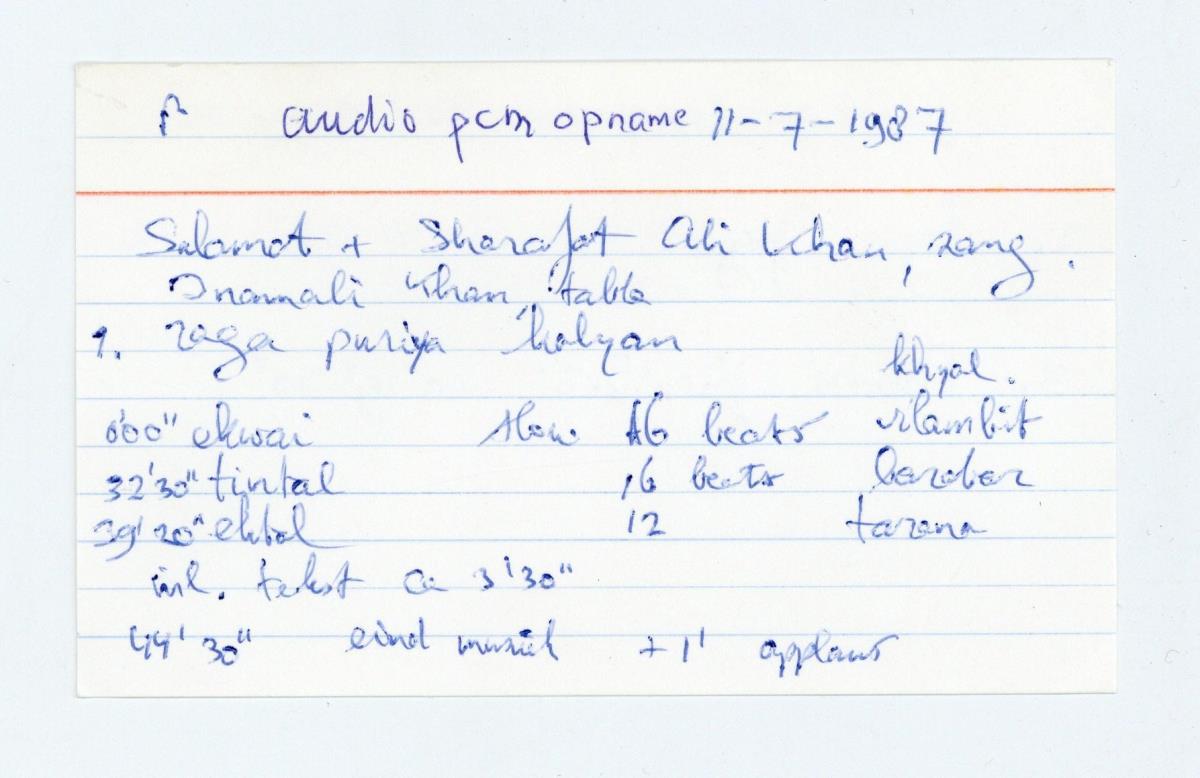 audio pcm opname 11-7-1987
Salamat + Sharafat Ali Khan, zang.
Inamali Khan, tabla
1. raga puriya kalyan
khyal.
0'00" ekwai slow 16 beats vilambit
32'30" tintal 16 beats barabar
39'20" ektal 12 tarana
inl. tekst ca 3'30"
44'30" eind muziek + 1' applaus